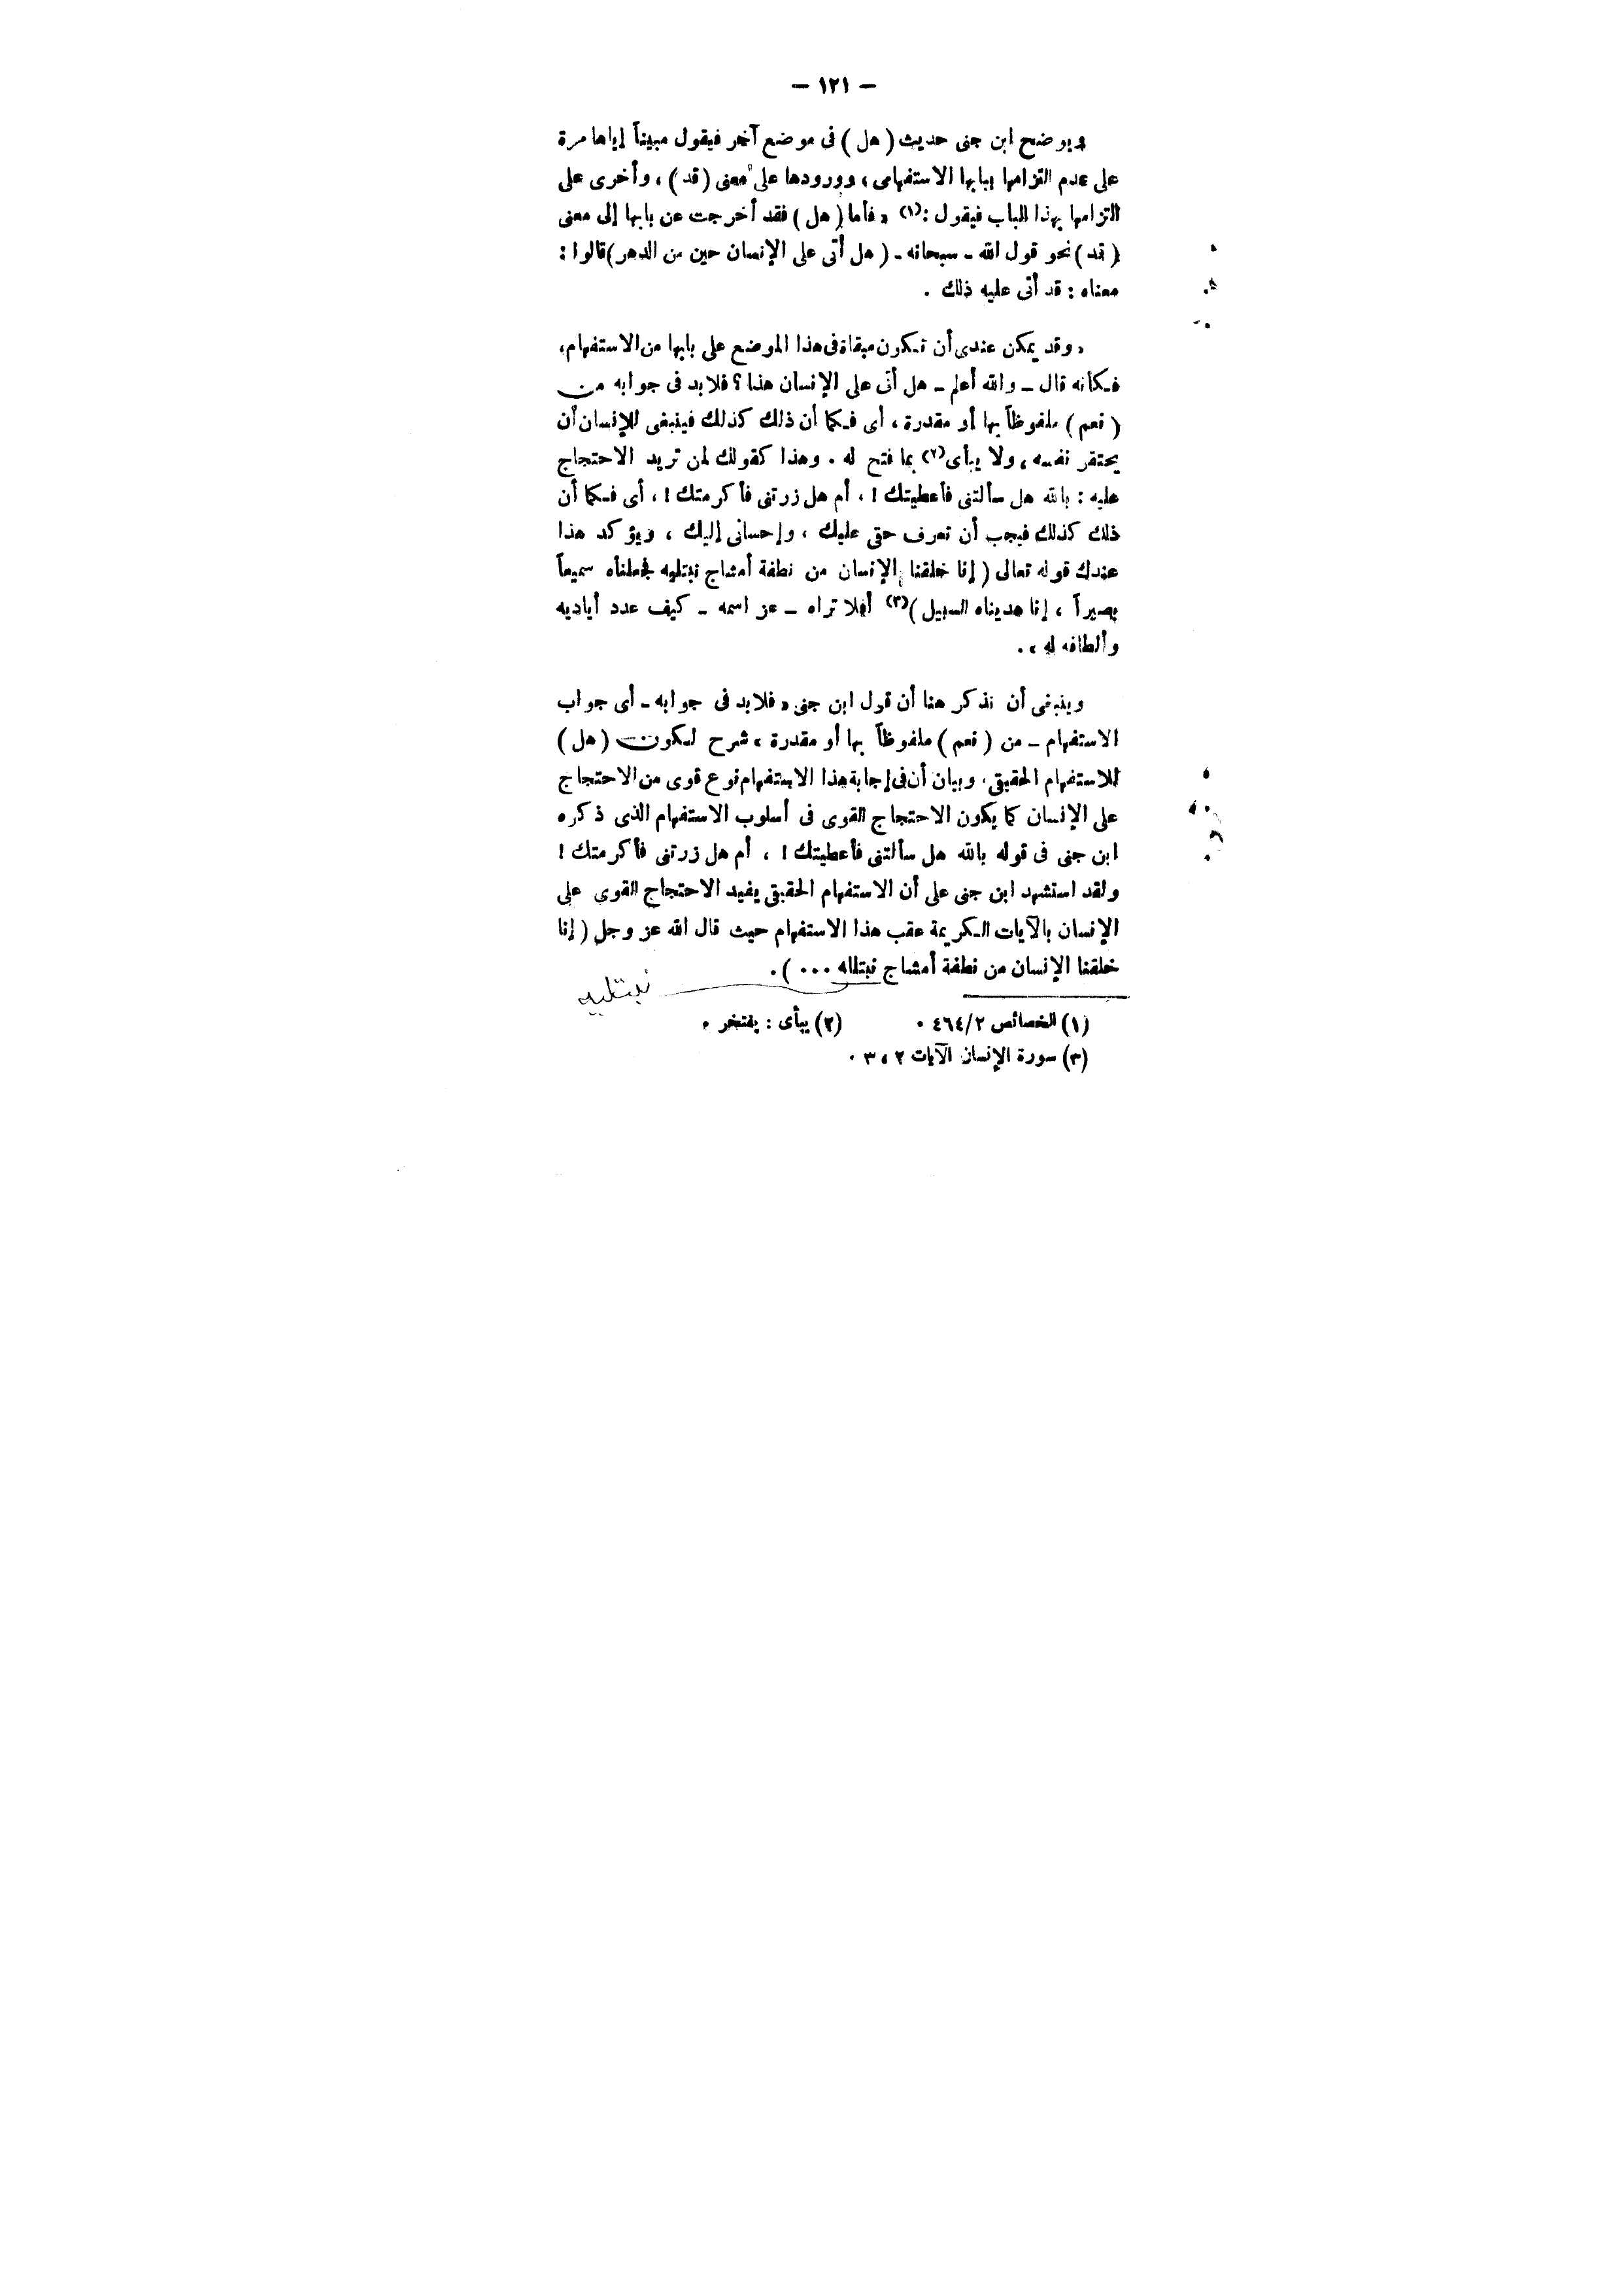 — ١٢١ —
ويوضح ابن جنى حديث ( هل ) فى موضع آخر فيقول مبيناً إياها مرة
على عدم التزامها ببابها الاستفهامى ، وورودها على معنى ( قد ) ، وأخرى على
التزامها بهذا الباب فيقول :(١) « فأما ( هل ) فقد أخرجت عن بابها إلى معنى
( قد ) نحو قول الله - سبحانه - ( هل أتى على الإنسان حين من الدهر ) قالوا :
معناه : قد أتى عليه ذلك .
« وقد يمكن عندى أن تكون مبقاة فى هذا الموضع على بابها من الاستفهام ،
فكأنه قال - والله أعلم - هل أتى على الإنسان هذا ؟ فلا بد فى جوابه من
( نعم ) ملفوظاً بها أو مقدرة ، أى فكما أن ذلك كذلك فينبغى للإنسان أن
يحتقر نفسه ، ولا يبأى(٢) بما فتح له . وهذا كقولك لمن تريد الاحتجاج
عليه : بالله هل سألتنى فأعطيتك ! ، أم هل زرتنى فأكرمتك ! ، أى فكما أن
ذلك كذلك فيجب أن تعرف حقى عليك ، وإحسانى إليك ، ويؤكد هذا
عندك قوله تعالى ( إنا خلقنا الإنسان من نطفة أمشاج نبتليه فجعلناه سميعاً
بصيراً ، إنا هديناه السبيل )(٣) أفلا تراه - عز اسمه - كيف عدد أياديه
وألطافه له » .
وينبغى أن نذكر هنا أن قول ابن جنى « فلابد فى جوابه - أى جواب
الاستفهام - من ( نعم ) ملفوظاً بها أو مقدرة » شرح لكون ( هل )
للاستفهام الحقيقى ، وبيان أن فى إجابة هذا الاستفهام نوع قوى من الاحتجاج
على الإنسان كما يكون الاحتجاج القوى فى أسلوب الاستفهام الذى ذكره
ابن جنى فى قوله بالله هل سألتنى فأعطيتك ! ، أم هل زرتنى فأكرمتك !
ولقد استشهد ابن جنى على أن الاستفهام الحقيقى يفيد الاحتجاج القوى على
الإنسان بالآيات الكريمة عقب هذا الاستفهام حيث قال الله عز وجل ( إنا
خلقنا الإنسان من نطفة أمشاج نبتلاه ... ) .
نبتليه
(١) الخصائص ٤٦٤/٢ . (٢) يبأى : يفتخر .
(٣) سورة الإنسان الآيات ٢ ، ٣ .